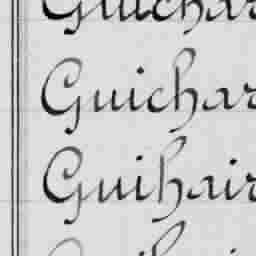 Guichar
Guichar
Guihair